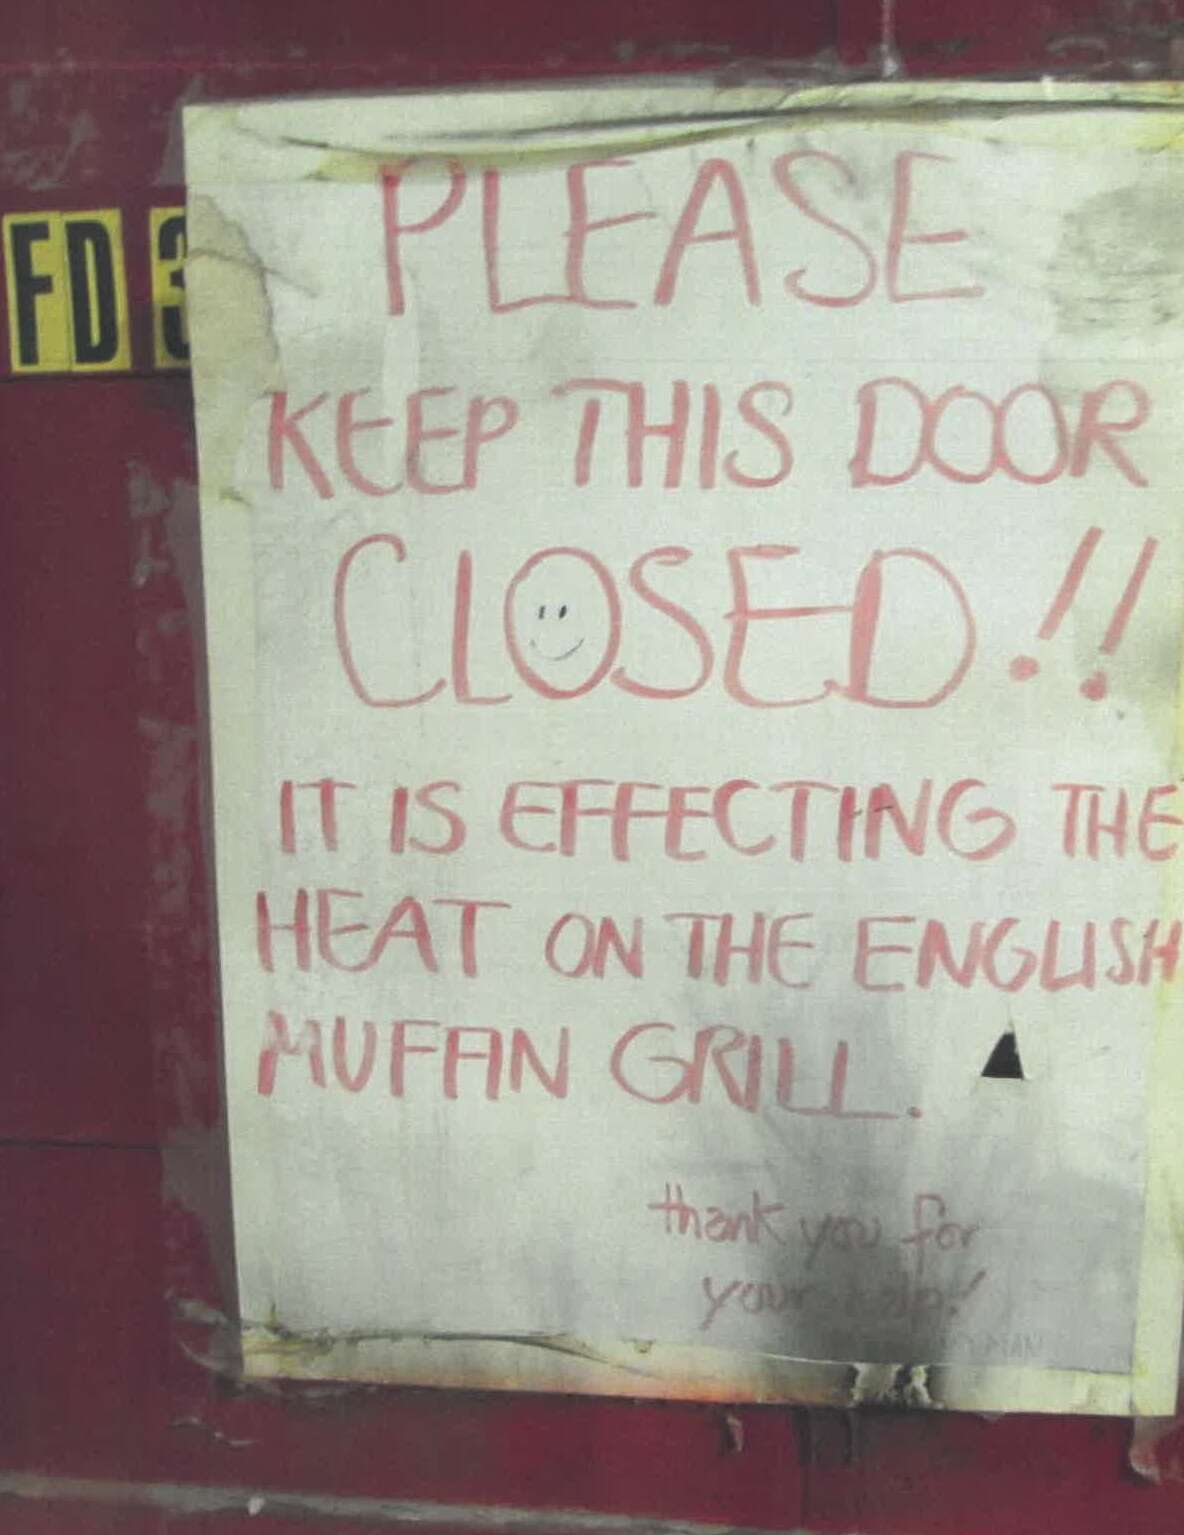 FD 3
PLEASE
KEEP THIS DOOR
CLOSED!!
IT IS EFFECTING THE
HEAT ON THE ENGLISH
MUFFIN GRILL.
thank you for
your help!